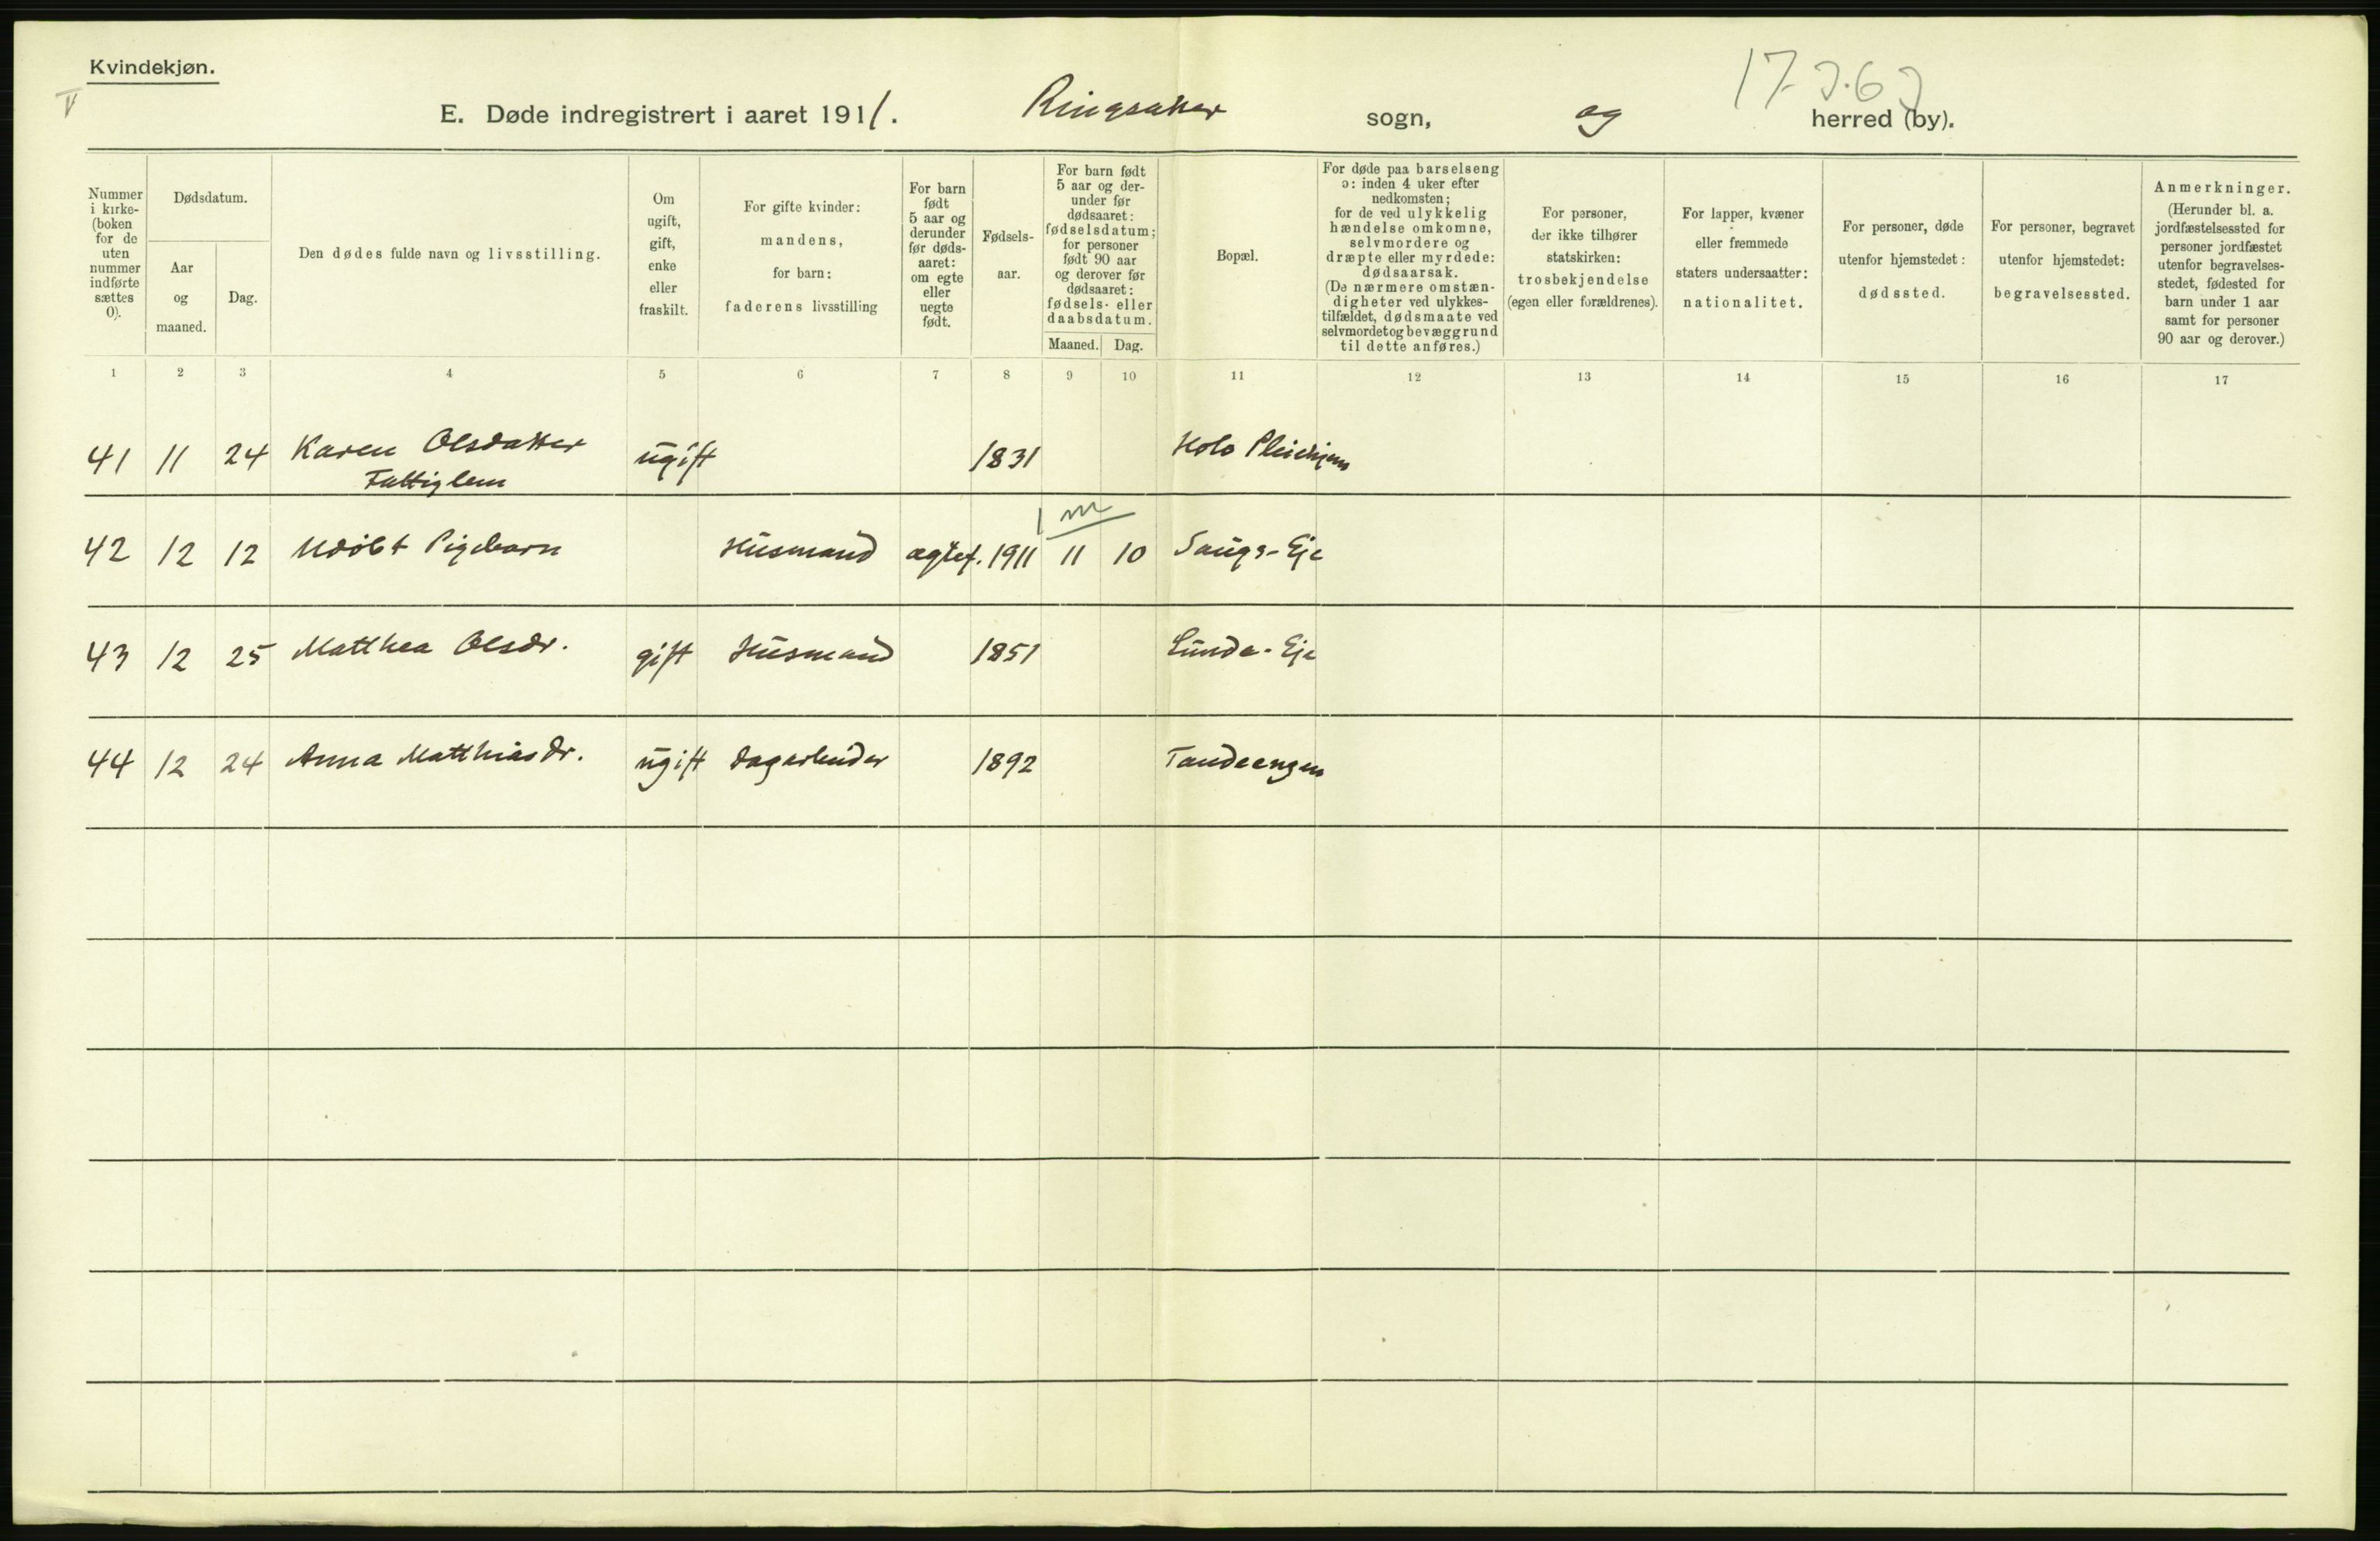 Kvindekjøn.
V
17-2.62
E. Døde indregistrert i aaret 1911. Ringsaker sogn, og herred (by).
Nummer i kirke- (boken for de uten nummer indførte sættes 0).
Dødsdatum.
Aar og maaned.
Dag.
Den dødes fulde navn og livsstilling.
Om ugift, gift, enke eller fraskilt.
For gifte kvinder: mandens, for barn: faderens livsstilling
For barn født 5 aar og derunder før døds- aaret: om egte eller uegte født.
Fødsels- aar.
For barn født 5 aar og der- under før dødsaaret: fødselsdatum; for personer født 90 aar og derover før dødsaaret: fødsels- eller daabsdatum.
Maaned. Dag.
Bopæl.
For døde paa barselseng ɔ: inden 4 uker efter nedkomsten; for de ved ulykkelig hændelse omkomne, selvmordere og dræpte eller myrdede: dødsaarsak. (De nærmere omstæn- digheter ved ulykkes- tilfældet, dødsmaate ved selvmordet og bevæggrund til dette anføres.)
For personer, der ikke tilhører statskirken: trosbekjendelse (egen eller forældrenes).
For lapper, kvæner eller fremmede staters undersaatter: nationalitet.
For personer, døde utenfor hjemstedet: dødssted.
For personer, begravet utenfor hjemstedet: begravelsessted.
Anmerkninger. (Herunder bl. a. jordfæstelsessted for personer jordfæstet utenfor begravelses- stedet, fødested for barn under 1 aar samt for personer 90 aar og derover.)
1 2 3 4 5 6 7 8 9 10 11 12 13 14 15 16 17
41 11 24 Karen Olsdatter ugift 1831 Holo Pleiehjem
Fattiglem
1 m
42 12 12 Udøbt Pigebarn Husmand egtef. 1911 11 10 Saugs-Eje
43 12 25 Matthea Olsdr. gift Husmand 1851 Lunde-Eje
44 12 24 Anna Matthiasdr. ugift Dagarbeider 1892 Tandeengen